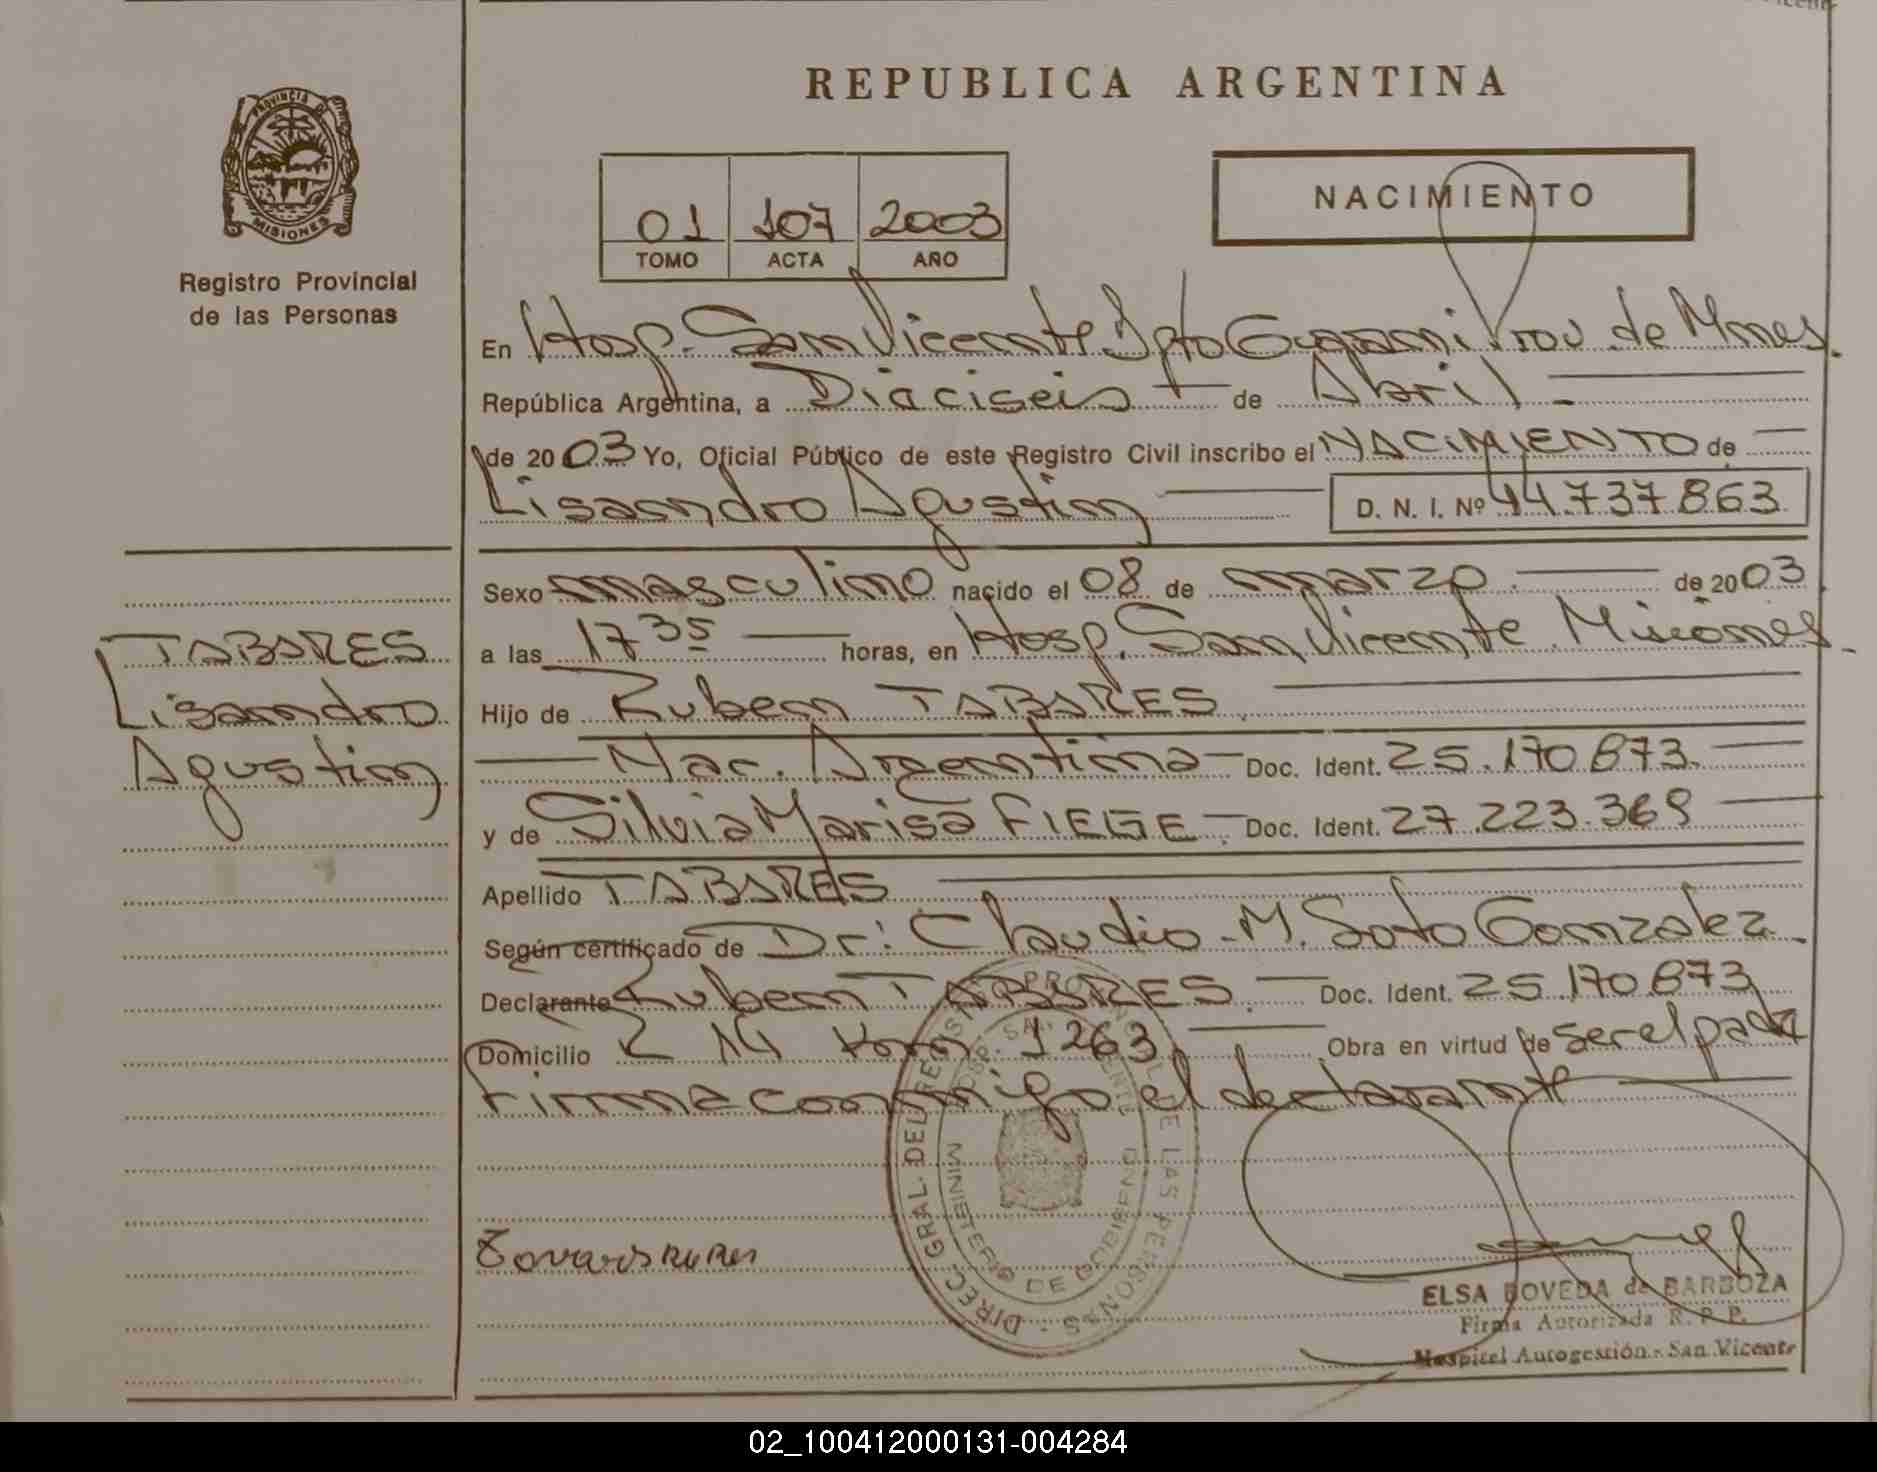 REPUBLICA ARGENTINA
PROVINCIA DE
MISIONES
Registro Provincial
de las Personas
01 107 2003
TOMO ACTA AÑO
NACIMIENTO
En Hosp. San Vicente Dpto Guarani Prov de Mnes.
República Argentina, a Diaciseis de Abril
de 2003 Yo, Oficial Público de este Registro Civil inscribo el NACIMIENTO de
Lisandro Agustin D. N. I. Nº 44.737.863
TABARES
Lisandro
Agustin
Sexo masculino nacido el 08 de marzo de 2003
a las 17 35 horas, en Hosp. San Vicente Misiones
Hijo de Ruben TABARES
Nac. Argentina Doc. Ident. 25.170.873
y de Silvia Marisa FIEGE Doc. Ident. 27.223.369
Apellido TABARES
Según certificado de Dr: Claudio M. Soto Gonzalez
Declarante Ruben TABARES Doc. Ident. 25.170.873
Domicilio R 14 Km 1263 Obra en virtud de ser el padre
Firma conmigo el declarante
DIREC. GRAL. DEL REGISTRO PROVINCIAL DE LAS PERSONAS
HOSP. SAN VICENTE
MINISTERIO DE GOBIERNO
ELSA BOVEDA de BARBOZA
Firma Autorizada R. P. P.
Hospital Autogestión - San Vicente
02_100412000131-004284